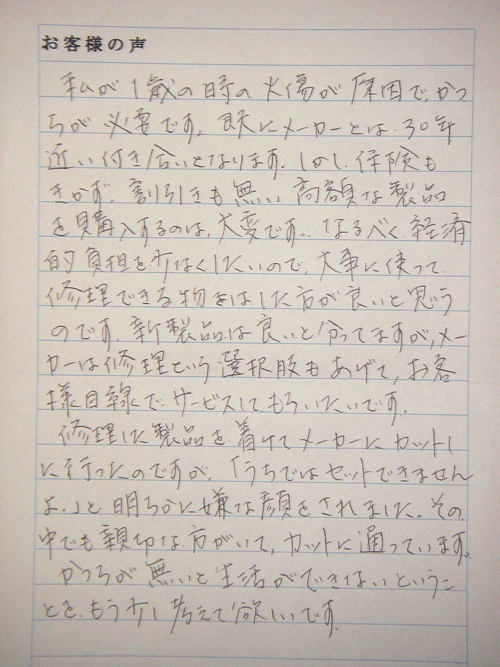 お客様の声
私が1歳の時の火傷が原因で、かつ
らが必要です。既にメーカーとは30年
近い付き合いとなります。しかし、保険も
きかず、割引きも無い高額な製品
を購入するのは、大変です。なるべく、経済
的負担を少なくしたいので、大事に使って
修理できる物をはした方が良いと思う
のです。新製品は良いと分ってますが、メー
カーは修理という選択肢もあげて、お客
様目線で、サービスしてもらいたいです。
修理した製品を着けてメーカーにカットし
に行ったのですが、「うちではセットできません
よ。」と明らかに嫌な顔をされました。その
中でも親切な方がいて、カットに通っています。
かつらが無いと生活ができないというこ
とを、もう少し考えて欲しいです。